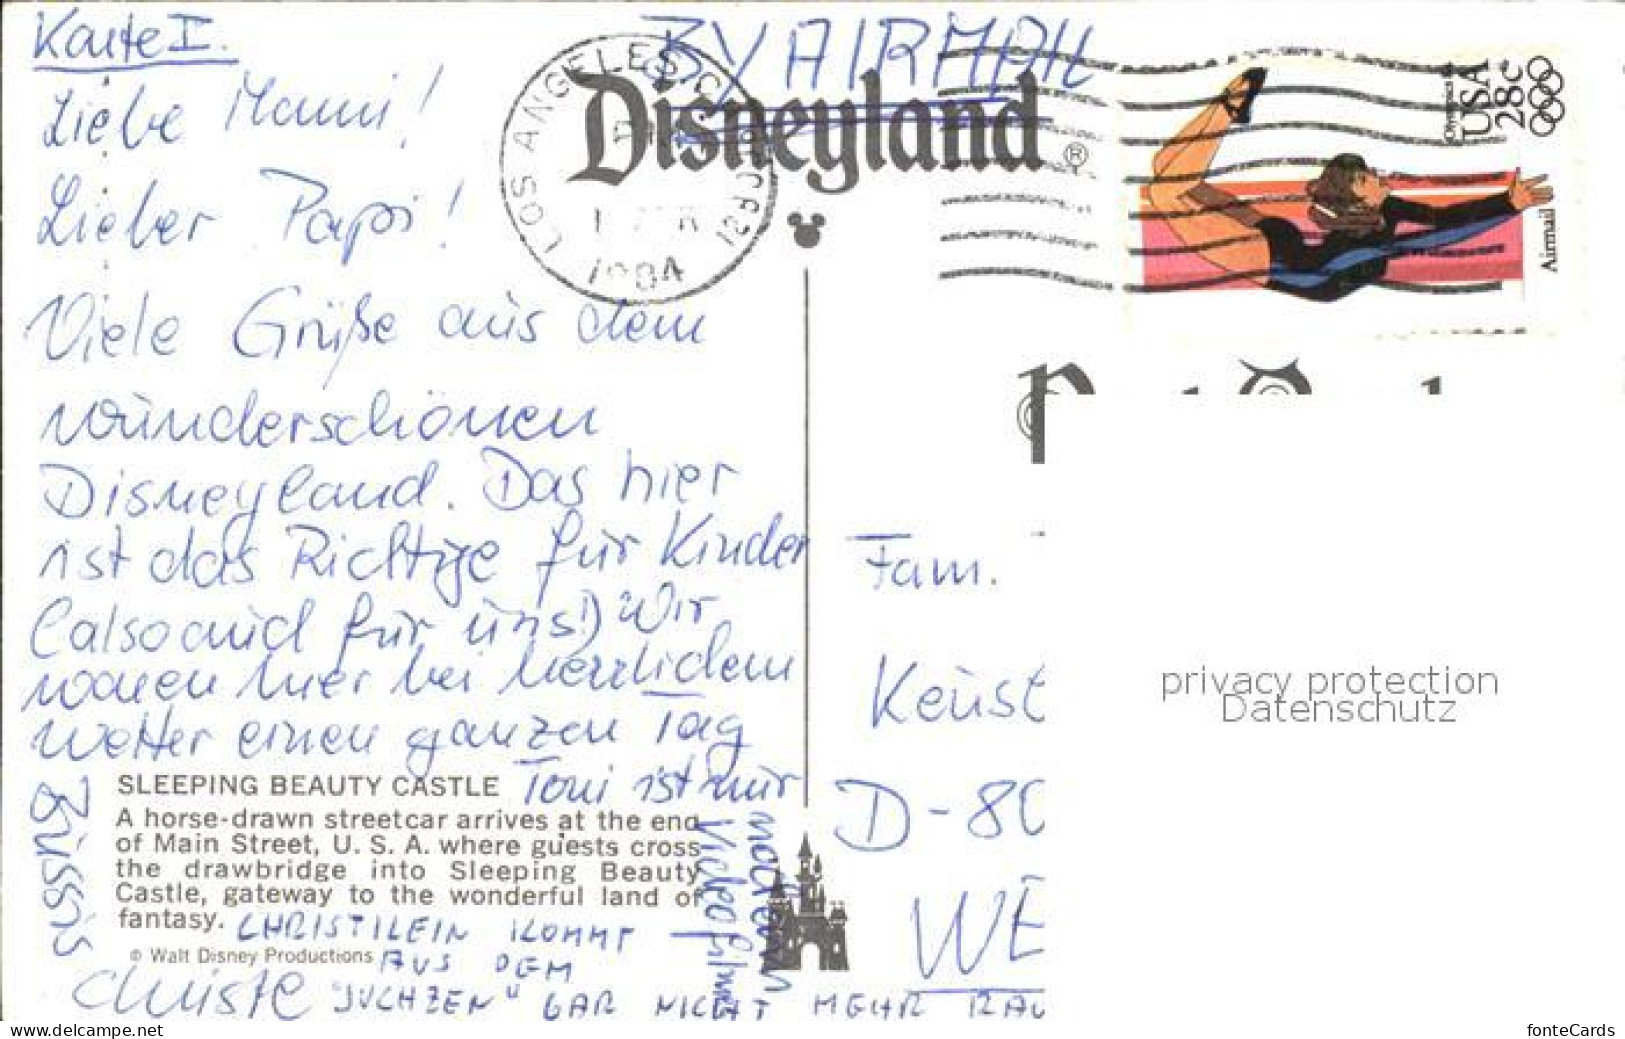 Karte I.
Liebe Mami!
Lieber Papi!
Viele Grüße aus dem
wunderschönen
Disneyland. Das hier
ist das Richtige für Kinder
(also auch für uns!) Wir
waren hier bei herrlichem
Wetter einen ganzen Tag
Toni ist nur
noch am
Videofilmen
Bussis
SLEEPING BEAUTY CASTLE
A horse-drawn streetcar arrives at the end
of Main Street, U. S. A. where guests cross
the drawbridge into Sleeping Beauty
Castle, gateway to the wonderful land of
fantasy.
© Walt Disney Productions
CHRISTILEIN KOMMT
AUS DEM
"JUCHZEN" GAR NICHT MEHR RAU
Christl
BY AIRMAIL
Disneyland®
LOS ANGELES, CA
1984
Olympics 84
USA
28c
Airmail
Fam.
D-80
WE
privacy protection
Datenschutz
www.delcampe.net
fonteCards